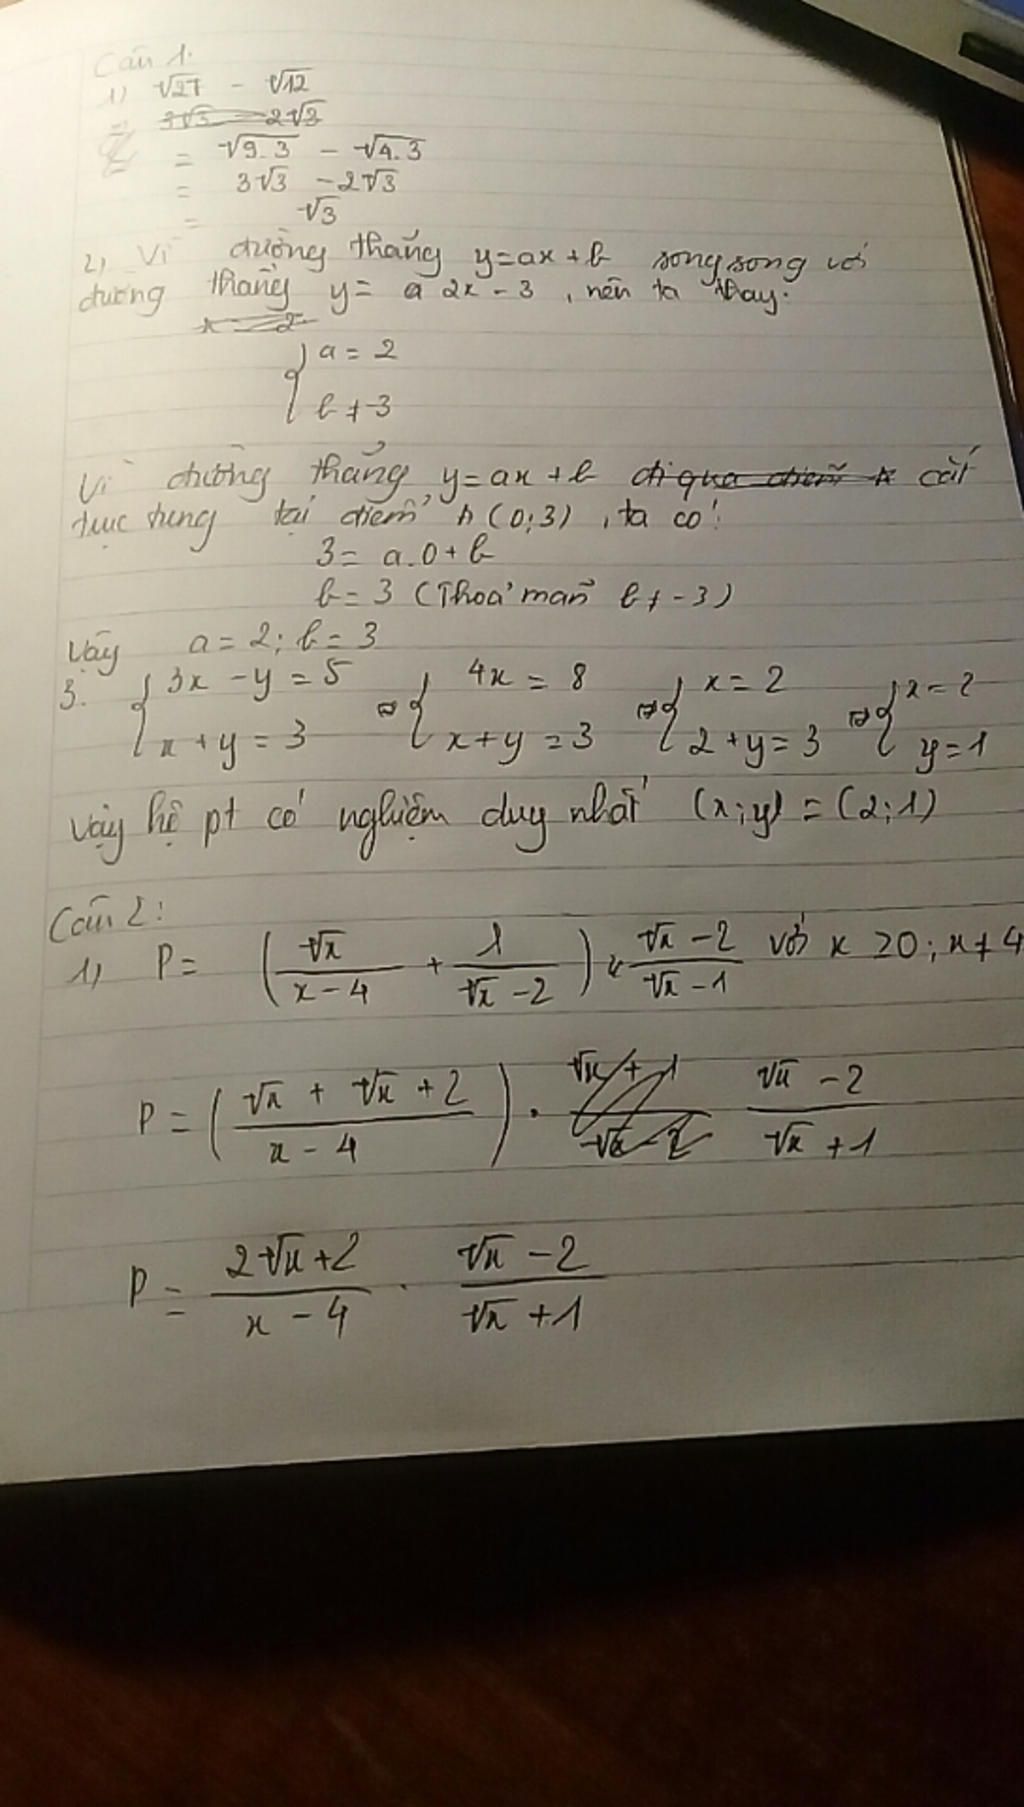 Câu 1.
1) √27 - √12
3√3 - 2√3
= √9.3 - √4.3
= 3√3 - 2√3
= √3
2) Vì đường thẳng y=ax+b song song với
đường thẳng y= a 2x-3, nên ta thay:
{ a = 2
{ b ≠ -3
Vì đường thẳng y=ax+b đi qua điểm A cắt
trục tung tại điểm A(0;3), ta có:
3= a.0+b
b=3 (Thoả mãn b≠-3)
Vậy a=2; b=3
3. { 3x-y=5 ⇔ { 4x=8 ⇔ { x=2 ⇔ { x=2
{ x+y=3 { x+y=3 { 2+y=3 { y=1
Vậy hệ pt có nghiệm duy nhất (x;y) = (2;1)
Câu 2:
1) P= (√x/(x-4) + 1/(√x-2)) · (√x-2)/(√x-1) với x ≥0; x≠4
P=((√x + √x +2)/(x-4)) · (√x+1)/(√x-2) (√x-2)/(√x+1)
P= (2√x+2)/(x-4) · (√x-2)/(√x+1)